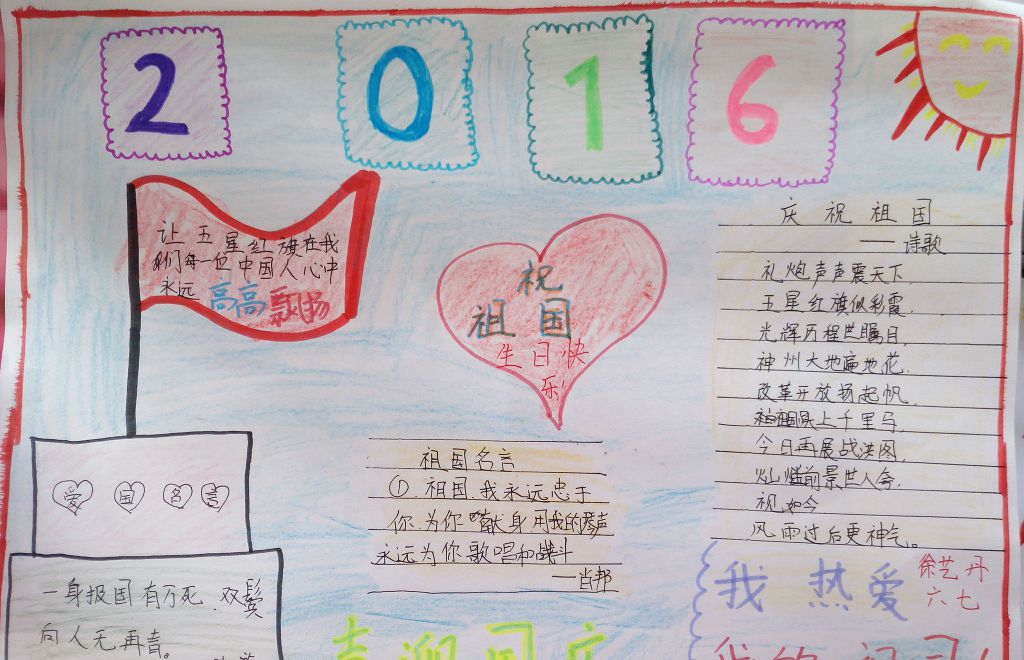 2016
让五星红旗在我
们每一位中国人心中
永远高高飘扬
祝
祖国
生日快
乐!
庆祝祖国
——诗歌
礼炮声声震天下
五星红旗似彩霞
光辉历程世瞩目,
神州大地遍地花,
改革开放扬起帆,
祖国跃上千里马
今日再展战洪图
灿烂前景世人夸,
祝如今
风雨过后更神气。
爱国名言
祖国名言
①.祖国,我永远忠于
你,为你献身用我的琴声
永远为你歌唱和战斗
——肖邦
一身报国有万死,双鬓
向人无再青。
我热爱
徐艺丹
六七
我的祖国!
喜迎国庆